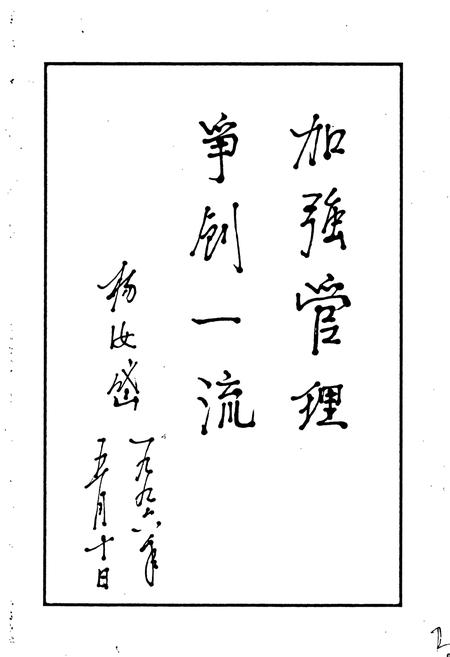 加强管理
争创一流
杨汝岱
一九九六年
五月十日